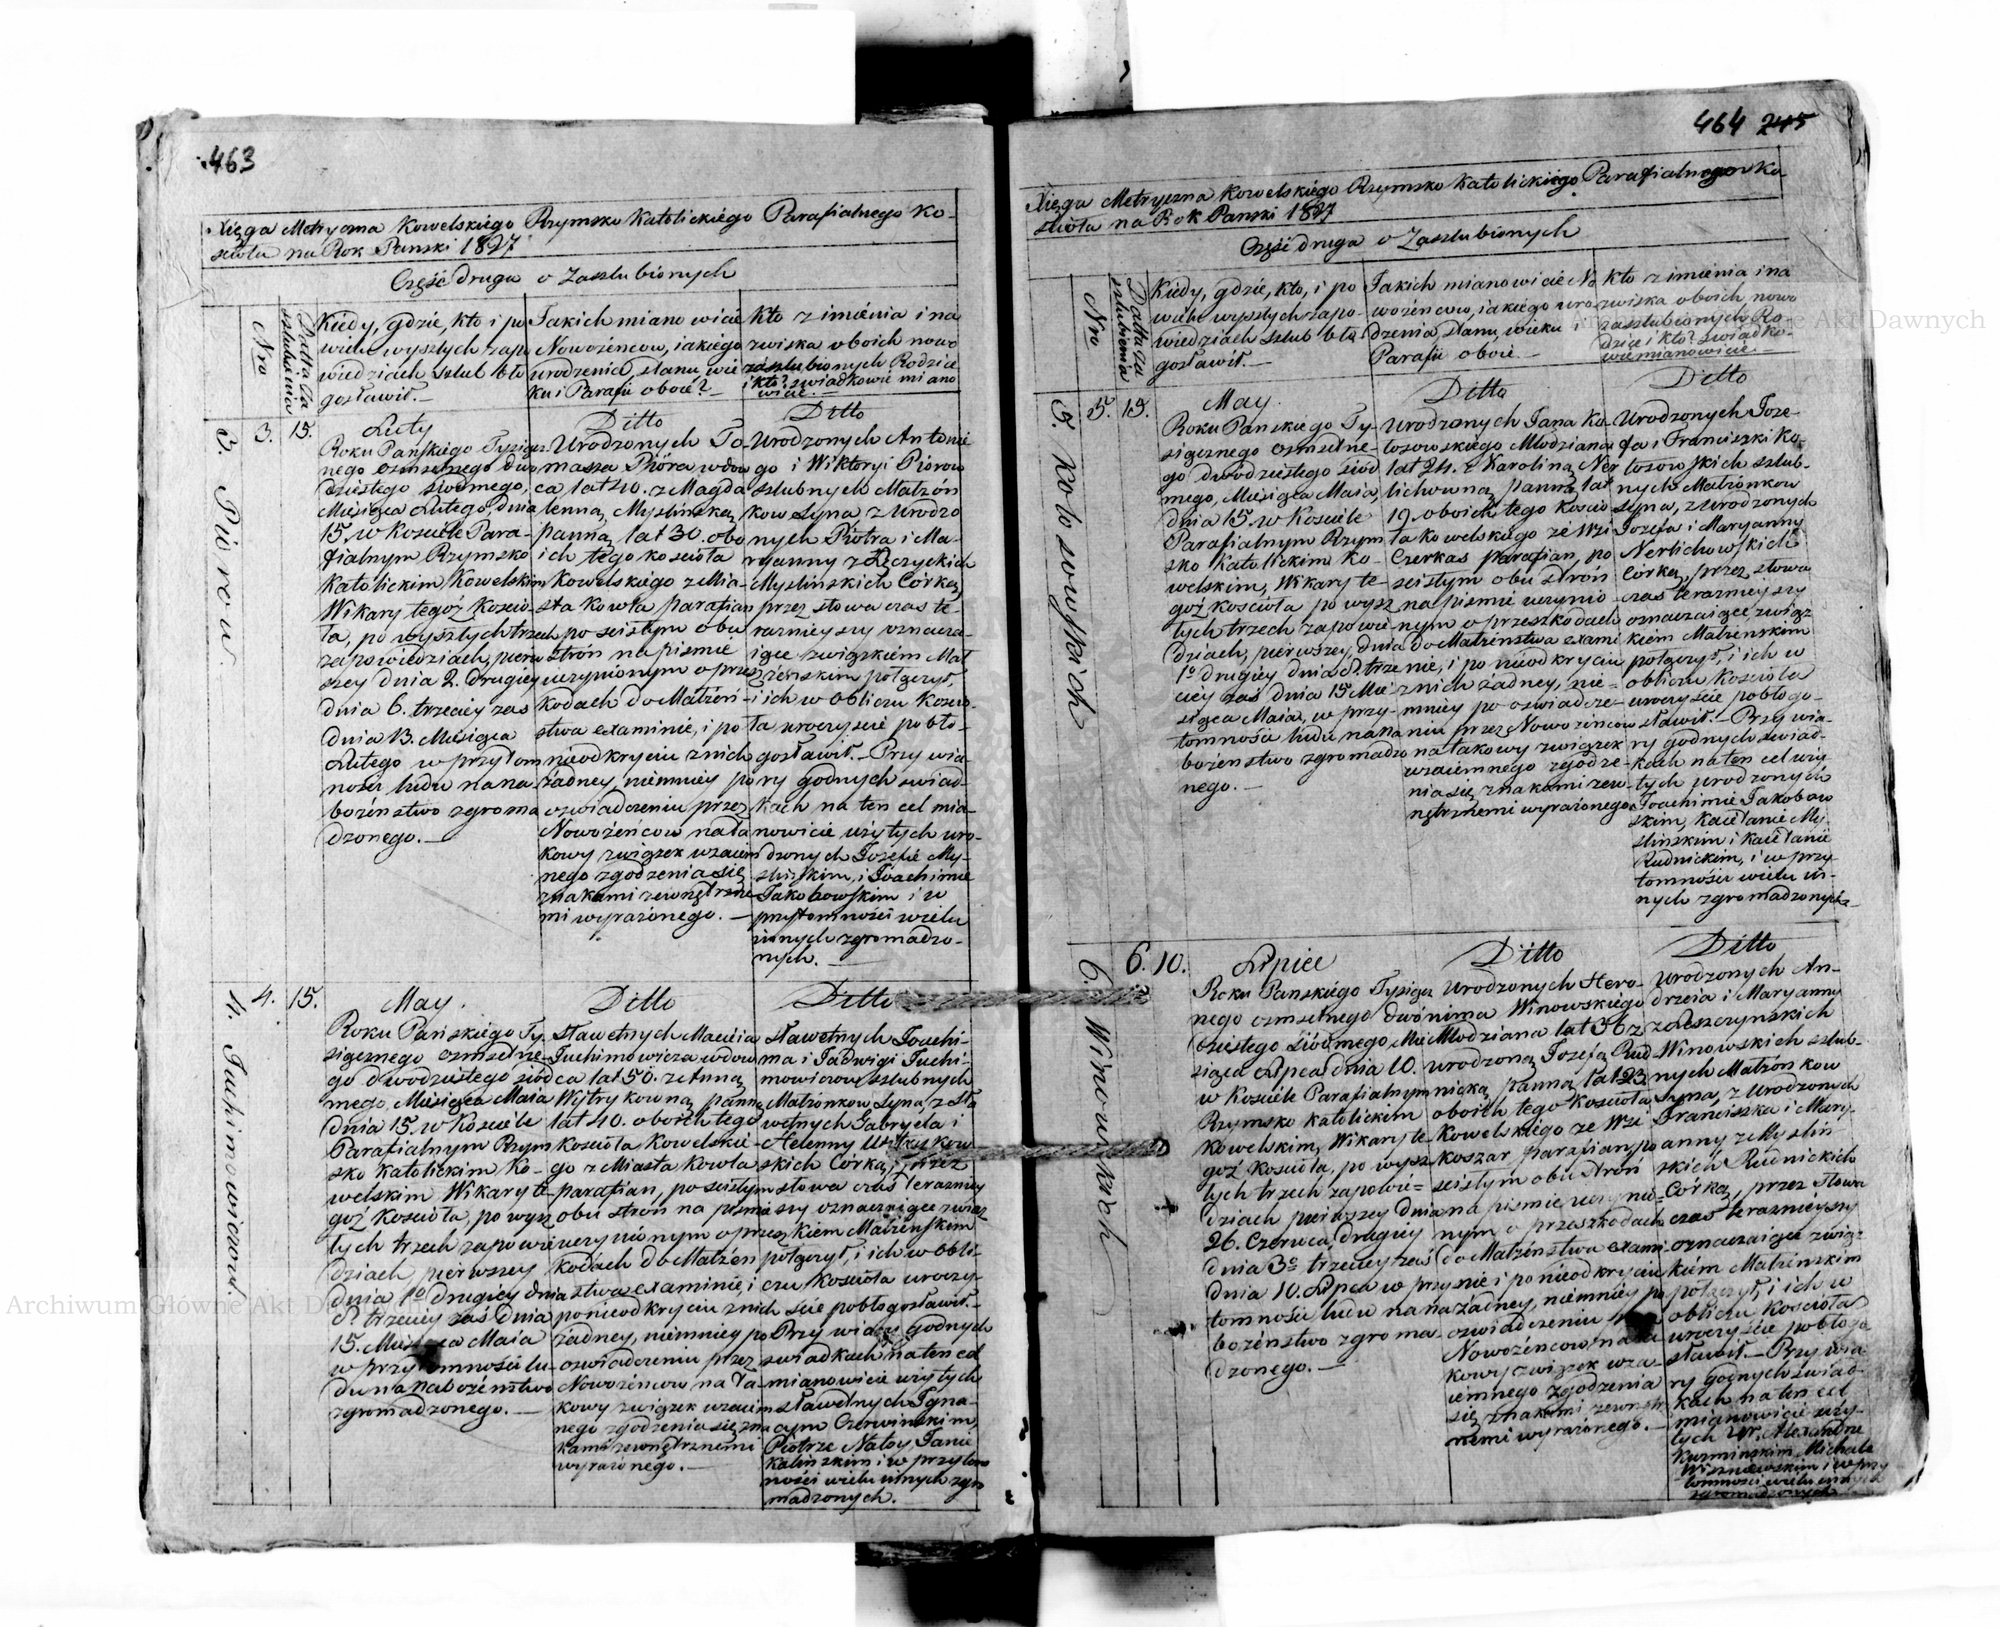 463
Xięga Metryczna Kowelskiego Rzymsko Katolickiego Parafialnego Ko-
scioła na Rok Panski 1827
Część druga o Zaszlubionych
Nro
Datta za
szlubienia
Kiedy, gdzie, kto i po
wielu wyszłych zapo
wiedziach szlub bło
gosławił. —
Jakich miano wicie
Nowożeńcow, iakiego
urodzenia, stanu, wie
ku i Parafii oboie? —
Kto z imienia i na
zwiska oboich nowo
zaszlubionych Rodzice
i kto? swiadkowie miano
wicie. —
3. Piorow.
3.
15.
Luty
Roku Pańskiego Tysiącz-
nego osmsetnego dwu
dziestego siodmego,
Miesiąca Lutego, dnia
15, w Kosciele Para-
fialnym Rzymsko
Katolickim Kowelskim
Wikary tegoż Koscio
ła, po wyszłych trzech
zapowiedziach, pierw
szey dnia 2. drugiey
dnia 6. trzeciey zas
dnia 13. Miesiąca
Lutego w przytom
nosci ludu na na
bożeństwo zgroma
dzonego. —
Ditto
Urodzonych To-
masza Pióra wdow
ca lat 40. z Magda
lenną Myslińską
panną lat 30. obo
ich tego koscioła
Kowelskiego z Mia-
sta Kowla parafian
po scisłym obu
strón na pismie
uczynionym o przesz
kodach do Małżeń-
stwa examinie, i po
nieodkryciu z nich
żadney, niemniey po
oswiadczeniu przez
Nowożeńcow na ta
kowy związek wzaiem
nego zgodzenia się
znakami zewnętrzne
mi wyrażonego. —
Ditto
Urodzonych Antonie
go i Wiktoryi Piorow
szlubnych Małżón
kow Syna z Urodzo
nych Piotra i Ma-
ryanny z Łęczyckich
Myslińskich Córką
przez słowa czas te-
raznieyszy oznacza-
iące związkiem Mał
żéńskim połączył,
i ich w obliczu Koscio
ła uroczyscie pobło-
gosławił. — Przy wia-
ry godnych swiad-
kach na ten cel mia-
nowicie użytych uro-
dzonych Jozefie My-
slińskim, i Joachimie
Jakobowskim i w
przytomności wielu
innych zgromadzo-
nych. —
4. Juchimowiczow.
4.
15.
May.
Roku Pańskiego Ty-
siącznego osmsetne-
go dwudziestego siód
mego, Miesiąca Maia
dnia 15. w Kosciele
Parafialnym Rzym
sko Katolickim Ko-
welskim Wikary te-
goż Koscioła, po wysz
łych trzech zapowie
dziach, pierwszey
dnia 1º drugiey dnia
8º trzeciey zaś dnia
15. Miesiąca Maia
w przytomnosci lu-
du na nabożeństwo
zgromadzonego. —
Ditto
Sławetnych Macieia
Juchimowicza wdow
ca lat 50. z Anną
Woytrykowną panną
lat 40. oboich tego
Koscioła Kowelskie-
go z Miasta Kowla
parafian, po scisłym
obu strón na pismie
uczynionym o przesz
kodach do Małżeń
stwa examinie, i
po nieodkryciu z nich
żadney, niemniey po
oswiadczeniu przez
Nowożeńcow na ta-
kowy związek wzaiem
nego zgodzenia się zna
kami zewnętrznemi
wyrażonego. —
Ditto
Sławetnych Jouchi-
ma i Jadwigi Juchi-
mowiczow szlubnych
Małżonkow Syna, z Sła
wetnych Gabryela i
Helenny
skich Córką, przez
słowa czas teraznieyszy
oznaczaiące związ
kiem Małżeńskim
połączył, i ich w obli-
czu Koscioła uroczy-
scie pobłogosławił. —
Przy wiary godnych
swiadkach na ten cel
mianowicie użytych
sławetnych Igna-
cym Czerwinskim,
Piotrze Janie
Kalinskim i w przytom
ności wielu innych zgro
madzonych.
464 245
Xięga Metryczna Kowelskiego Rzymsko Katolickiego Parafialnego Ko-
scioła na Rok Panski 1827
Część druga o Zaszlubionych
Nro
Datta za
szlubienia
Kiedy, gdzie, kto, i po
wielu wyszłych zapo-
wiedziach szlub bło
gosławił. —
Jakich mianowicie No
wożeńcow, iakiego uro
dzenia, stanu, wieku i
Parafii oboie. —
Kto z imienia i na
zwiska oboich nowo
zaszlubionych Ro-
dzice i kto? swiadko-
wie mianowicie. —
5. Kołosowskich
5.
15.
May.
Roku Panskiego Ty-
siącznego osmsetne-
go dwódziestego siód
mego, Miesiąca Maia
dnia 15. w Kosciele
Parafialnym Rzym
sko Katolickim Ko-
welskim, Wikary te-
goż kościoła po wysz
łych trzech zapowie
dziach, pierwszey dnia
1º drugiey dnia 8º trze
ciey zaś dnia 15 Mie
siąca Maia, w przy-
tomności ludu na na
bożenstwo zgromadzo
nego. —
Ditto
Urodzonych Jana Ko-
łosowskiego Młodziana
lat 24. z Karoliną Ner
lichowną panną lat
19. oboich tego Koscio
ła Kowelskiego ze Wsi
Czerkas parafian, po
scisłym obu strón
na pismie uczynio-
nym o przeszkodach
do Małżeństwa exami
nie, i po nieodkryciu
z nich żadney, nie=
mniey po oswiadcze-
niu przez Nowożeńcow
na takowy związek
wzaiemnego zgodze-
nia się znakami zew-
nętrznemi wyrażonego
Ditto
Urodzonych Joze-
fa i Franciszki Ko-
łosowskich szlub-
nych Małżonkow
Syna, z Urodzonych
Jozefa i Maryanny
Nerlichowskich
Córką, przez słowa
czas teraznieyszy
oznaczaiące związ
kiem Małżenskim
połączył, i ich w
obliczu Koscioła
uroczyscie pobłogo-
sławił. — Przy wia-
ry godnych Swiad-
kach na ten cel uży
tych urodzonych
Joachimie Jakobow
skim, Kaietanie My
slinskim i Kaietanie
Rudnickim, i w przy-
tomności wielu in-
nych zgromadzonych. —
6. Winowskich
6.
10.
Lipiec
Roku Panskiego Tysiącz
nego osmsetnego dwó
dziestego siódmego Mie
siąca Lipca dnia 10.
w Kosciele Parafialnym
Rzymsko Katolickim
Kowelskim, Wikary te-
goż Koscioła, po wysz
łych trzech zapowie=
dziach pierwszey dnia
26. Czerwca, drugiey
dnia 3º trzeciey zaś
dnia 10. Lipca w przy
tomności ludu na na
bożeństwo zgroma
dzonego. —
Ditto
Urodzonych Hero-
nima Winowskiego
Młodziana lat 36 z
urodzoną Jozefą Rud
nicką, panną lat 23
oboich tego Koscioła
Kowelskiego ze Wsi
Koszar parafian, po
scisłym obu stron
na pismie uczynio=
nym o przeszkodach
do Małżeństwa exami
nie i po nieodkryciu
żadney, niemniey po
oswiadczeniu
Nowożeńcow na ta
kowy związek wza-
iemnego zgodzenia
się znakami zewnętrz
nemi wyrażonego. —
Ditto
Urodzonych An-
drzeia i Maryanny
z Leszczynskich
Winowskich szlub-
nych Małżónkow
Syna, z Urodzonych
Franciszka i Mary-
anny z Myslin-
skich Rudnickich
Córką, przez słowa
czas teraznieyszy
oznaczaiące związ
kiem Małżenskim
połączył, i ich w
obliczu Kościoła
uroczyście pobłogo
sławił. — Przy wia
ry godnych swiad-
kach na ten cel
mianowicie uży-
tych Ur. Alexandrze
Kuzminskim Michale
Wiszniowskim i w przy
tomnosci wielu innych
zgromadzonych
Archiwum Główne Akt Dawnych
Archiwum Główne Akt Dawnych